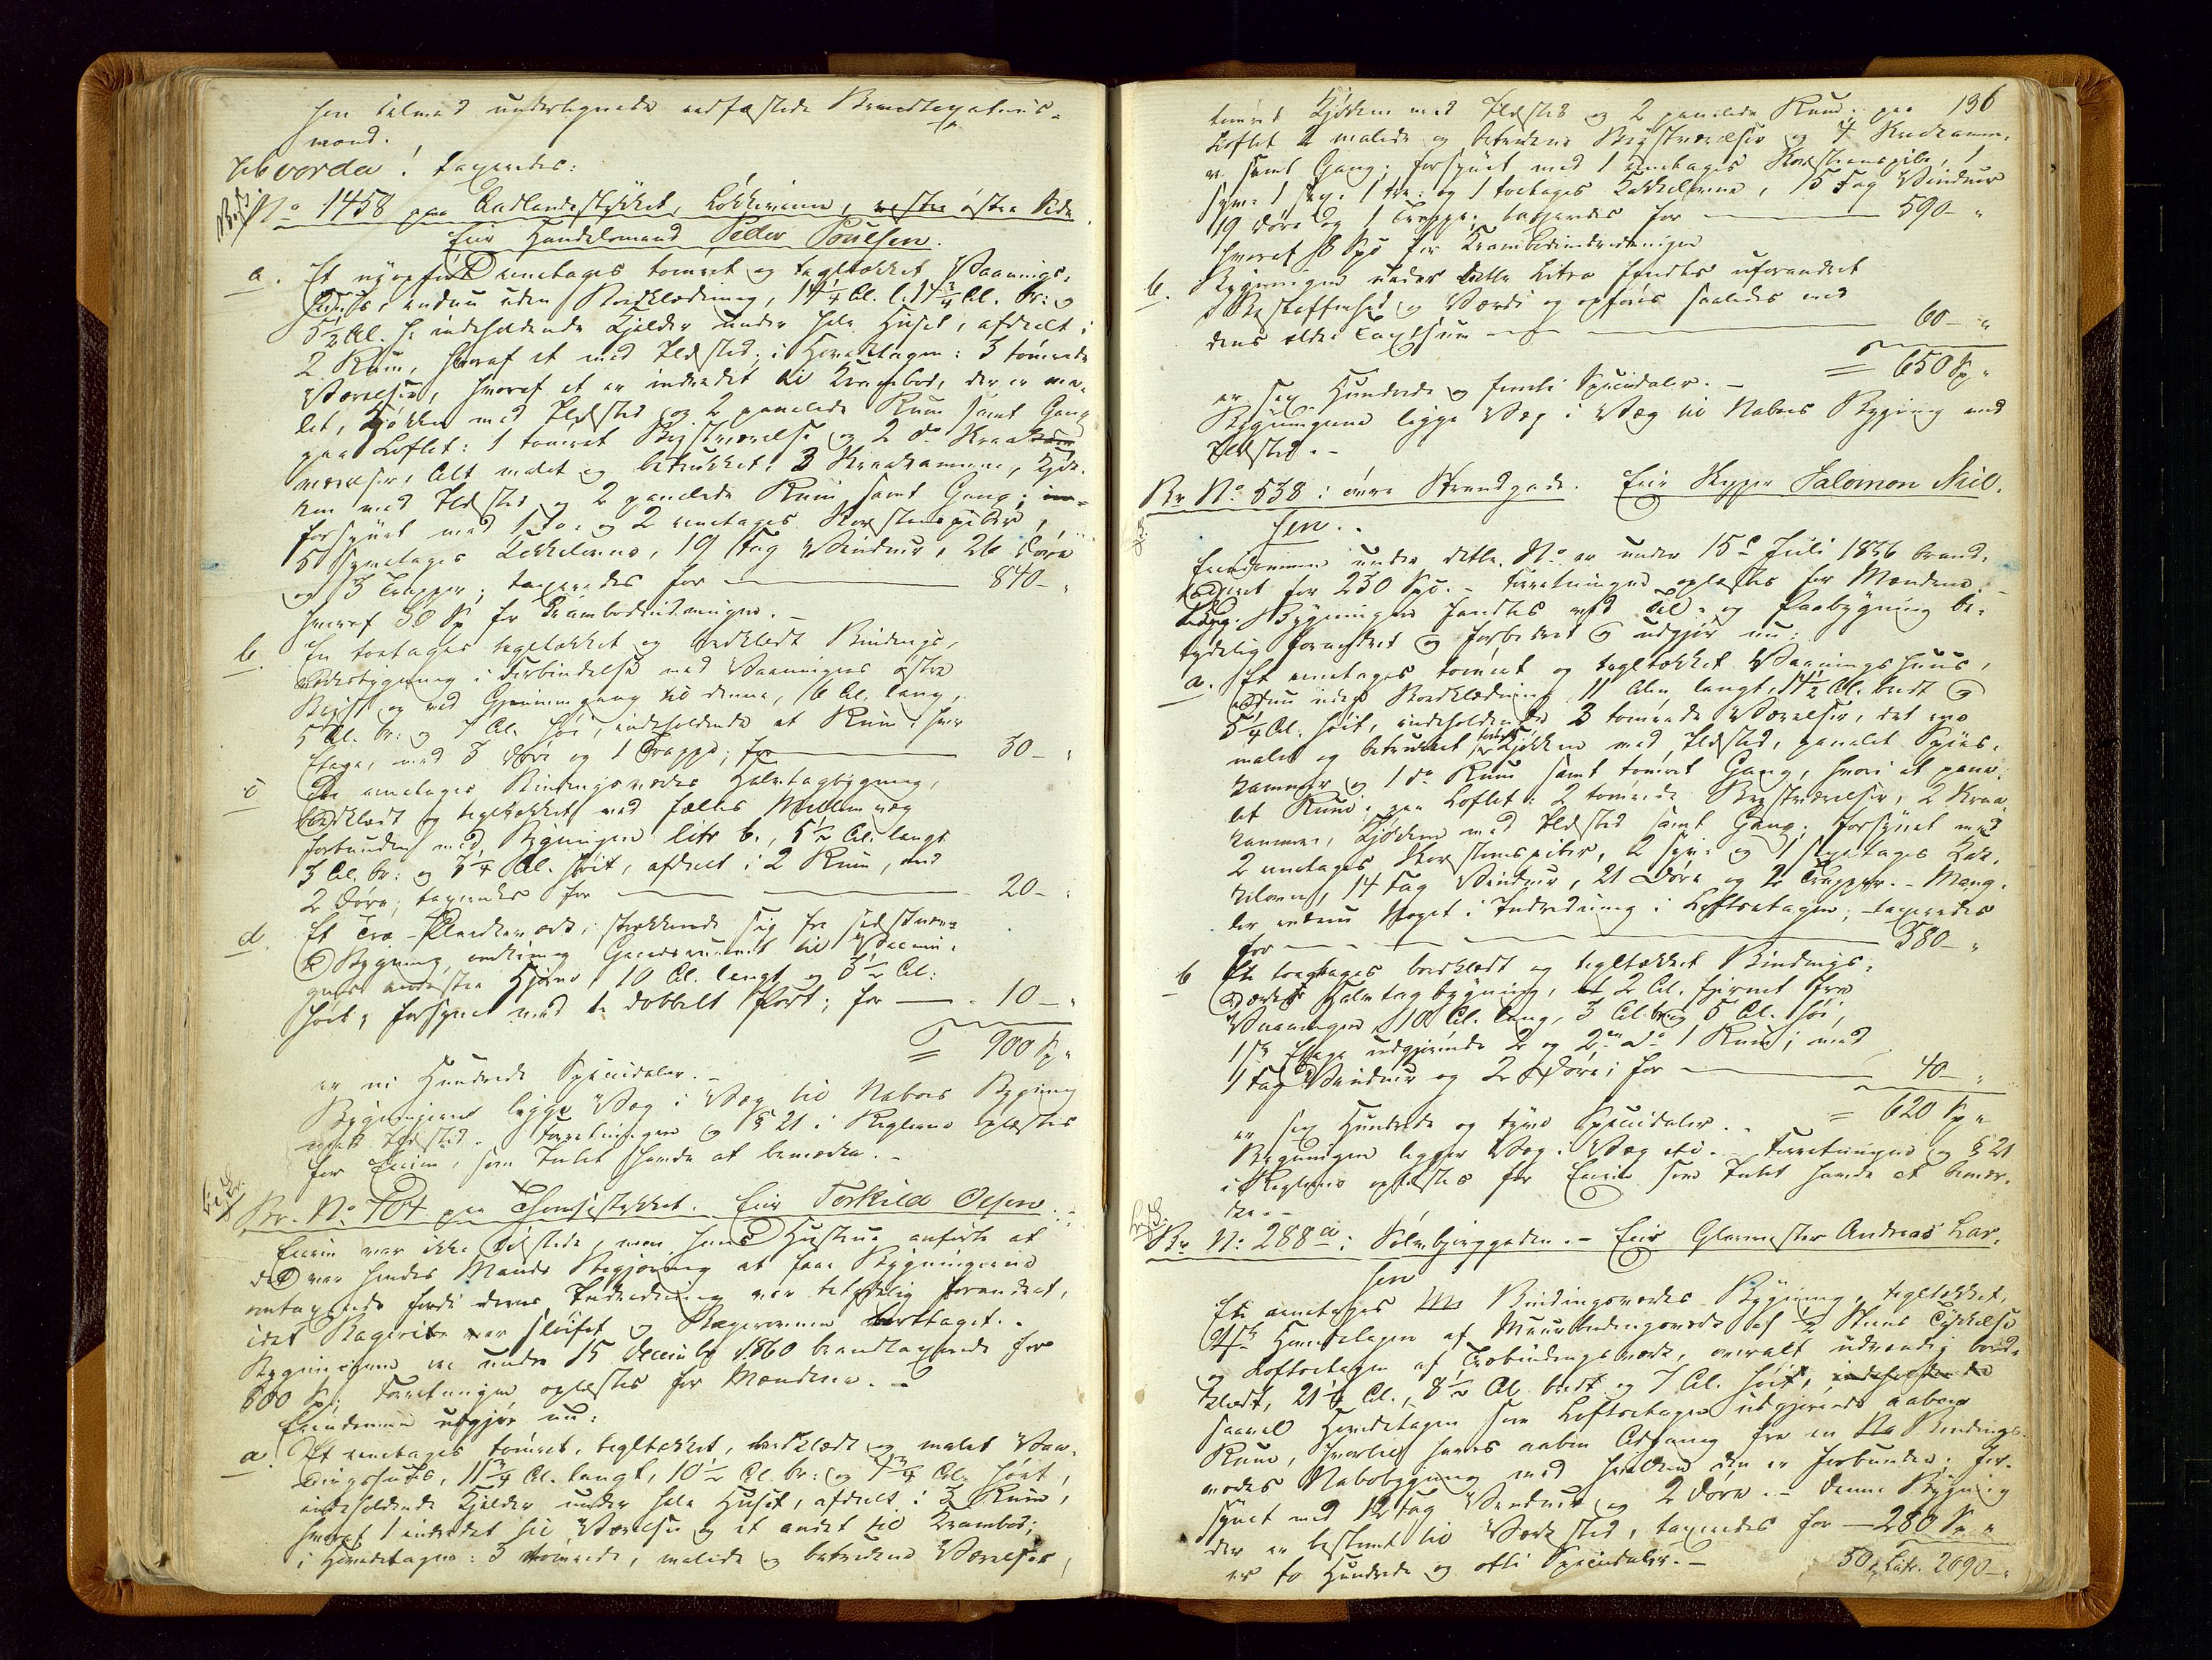 hen tilmed undertegnede edfæstede Brandtaxations-
mænd.
Hvorda! taxeredes:
No 1458 paa Aadlandsstykket, Løkkeveien, vestre østre Side
Eier Handelsmand Peder Poulsen.
a. Et nyopført eenetages tømret og tegltækket Vaanings-
huus, endnu uden Bordklædning, 14 1/4 Al. l. 14 3/4 Al. br: og
5 1/2 Al. h. indeholdende Kjelder under hele Huset, afdeelt i
2 Rum, hvoraf et med Ildsted; i Hovedetagen: 3 tømrede
Værelser, hvoraf et er indredet til Krambod, der er ma-
let, Kjøkken med Ildsted og 2 panelede Rum samt Gang
paa Loftet: 1 tømret Bryst værelse og 2 do Kraa
værelser, Alt malet og betrukket: 3 Kraakamre, Kjøk-
ken med Ildsted og 2 panelede Rum samt Gang;
forsynet med 1 to- og 2 eenetages Skorstenspiber,
5 Kakkelovne, 19 Fag Vinduer, 26 Døre
og 3 Trapper; taxeredes for 840 - "
hvoraf 50 Sp for Krambodindredningen. -
b. En toetages tegltækket og bordklædt Bindings-
værksbygning i Forbindelse med Vaaningens østre
og med Gjennemgang til denne, 6 Al. lang,
5 Al. br: og 7 Al. høi, indeholdende et Rum i hver
Etage, med 3 Døre og 1 Trappe; for 30 - "
c En eenetages Bindingsværks Halvtagbygning,
bordklædt og tegltækket med fælles Mellemvæg
forbunden med Bygningen litr b., 5 1/2 Al. langt
3 Al. br: og 3 1/4 Al. høit, afdeelt i 2 Rum, med
2 Døre; taxeredes for 20 - "
d. Et Træ-Plankeværk, strækkende sig fra sidstnævn-
te Bygning, omkring Gaardsrummet til Vaanin-
gens Hjørne, 10 Al. langt og 3 1/2 Al.
høit, forsynet med 1 dobbelt Port; for 10 - "
= 900 Sp "
er ni Hundrede Speciedaler. -
Bygningerne ligge Væg i Væg til Nabos Bygning
med Ildsted. Forretningen og § 21 i Reglerne oplæstes
for Eieren, som Intet havde at bemærke. -
Br. No 704 paa Thomsestykket. Eier Torkild Olsen.
Eieren var ikke tilstede, men hans Hustrue anførte at
det var hendes Mands Begjæring at faae Bygningerne
omtaxerede fordi deres Indredning var betydelig forandret,
idet Bageriet var sløifet og Bagerovnen borttaget. -
Bygningerne ere under 15 December 1860 brandtaxerede for
600 Sp; Forretningen oplæstes for Mændene. -
Eiendommen udgjør nu:
a. Et eenetages tømret, tegltækket, bordklædt og malet Vaa-
ningshuus, 11 3/4 Al. langt, 10 1/2 Al. br: og 7 3/4 Al. høit,
indeholdende Kjelder under hele Huset, afdeelt i 3 Rum,
hvoraf 1 indredet til Værelse og et andet til Krambod;
i Hovedetagen: 3 tømrede, malede og betrukne Værelser,
196
tømret Kjøkken med Ildsted og 2 panelede Rum; paa
Loftet malede og betrukne Brystværelser og 4 Kraakamre.
samt Gang; forsynet med 1 eenetages Skorstenspibe, 1
1 tre- og 1 toetages Kakkelovne, 15 Fag Vinduer
19 Døre og 1 Trappe; taxeredes for 590 - "
hvoraf Spd for Krambodindredningen
b. Bygningen under dette Litra fandtes uforandret
i Beskaffenhed og Værdi og opføres saaledes med
dens ældre Taxtsum 60 - "
= 650 Sp "
er sex Hundrede og femti Speciedaler. -
Bygningerne ligge Væg i Væg til Nabos Bygning med
Ildsted. -
Br No 538 i øvre Strandgade. Eier Skipper Salomon Niel-
sen..
Eiendommen under dette No er under 15de Juli 1856 brand-
taxeret for 230 Spd. - Forretningen oplæstes for Mændene. -
Bygningen fandtes ved Til- og Paabygning be-
tydelig forandret og forbedret og udgjør nu:
a. Et eenetages tømret og tegltækket Vaaningshuus,
endnu uden Bordklædning, 11 Alen langt, 11 1/2 Al. bredt og
5 1/4 Al. høit, indeholdende 3 tømrede Værelser, det ene
malet og betrukket, Kjøkken med Ildsted, panelet Spise-
kammer og 1 do Rum samt tømret Gang, hvori et pane-
let Rum; paa Loftet: 2 tømrede Brystværelser, 2 Kraa-
kammer, Kjøkken med Ildsted samt Gang; forsynet med
2 eenetages Skorstenspiber, 2 og 1 Kak-
kelovne, 14 Fag Vinduer, 21 Døre og 2 Trapper. - Mang-
ler endnu Noget i Indredning i Loftsetagen; taxeredes
for 580 - "
b En toetages bordklædt og tegltækket Bindings-
værks Halvtagbygning, 2 Al. fjernet fra
Vaaningen, 10 Al. lang, 3 Al. br og 5 Al. høi,
1ste Etage udgjørende 2 og 2den do 1 Rum; med
1 Fag Vinduer og 2 Døre; for 40 - "
= 620 Sp "
er sex Hundrede og tyve Speciedaler. -
Bygningen ligger Væg i Væg etc. - Forretningen og § 21
i Reglerne oplæstes for Eieren som Intet havde at bemær-
ke. -
Br No 288 a i Sølvbjerggaden. - Eier Glarmester Andreas Lar-
sen
En eenetages Bindingsværks Bygning, tegltækket,
Hovedetagen af Muurbindingsværk af 1/2 Steens Tykkelse
og Loftsetagen af Træbindingsværk, overalt udvendig bord-
klædt, 21 1/2 Al., 8 1/2 Al bredt og 7 Al. høit, indeholdende
saavel Hovedetagen som Loftsetagen udgjørende aabne
Rum, hvortil haves aaben Adgang fra en Bindings-
værks Nabobygning med hvilken den er forbunden; for-
synet med 12 Fag Vinduer og 2 Døre. - Denne Bygning
der er bestemt til Værksted, taxeredes for 280 Sp "
er to Hundrede og otti Speciedaler. -
50 Latr. 2690 - "